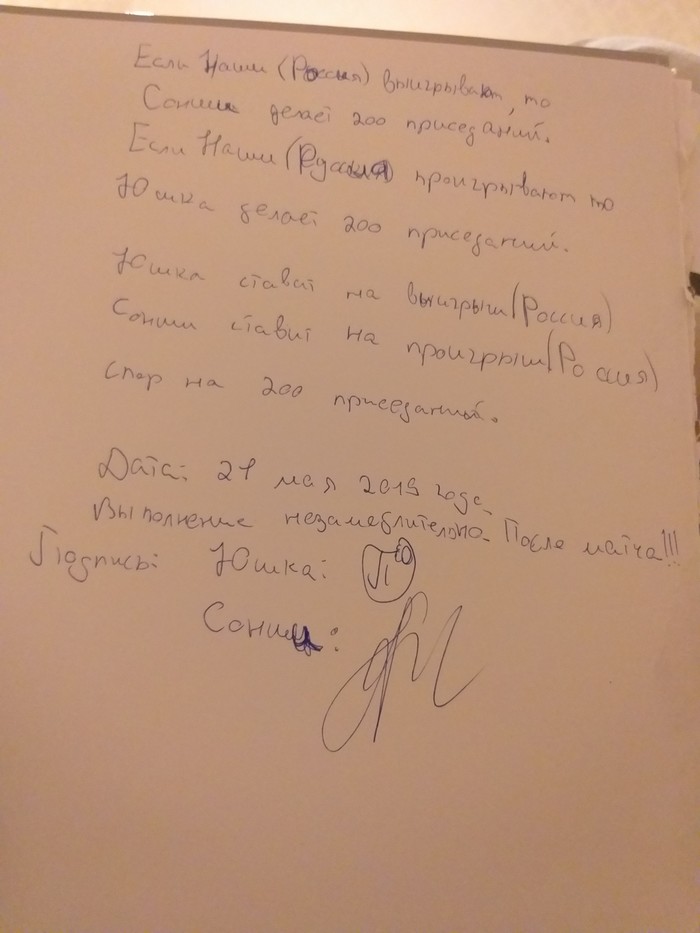 Если Наши (Россия) выигрывают, то
Сонши делает 200 приседаний.
Если Наши (Руссия) проигрывают то
Юшка делает 200 приседаний.
Юшка ставит на выигрыш (Россия)
Сонши ставит на проигрыш (Россия)
Спор на 200 приседаний.
Дата: 21 мая 2019 года.
Выполнение незамедлительно. После матча!!!
Подпись: Юшка:
Сонши: